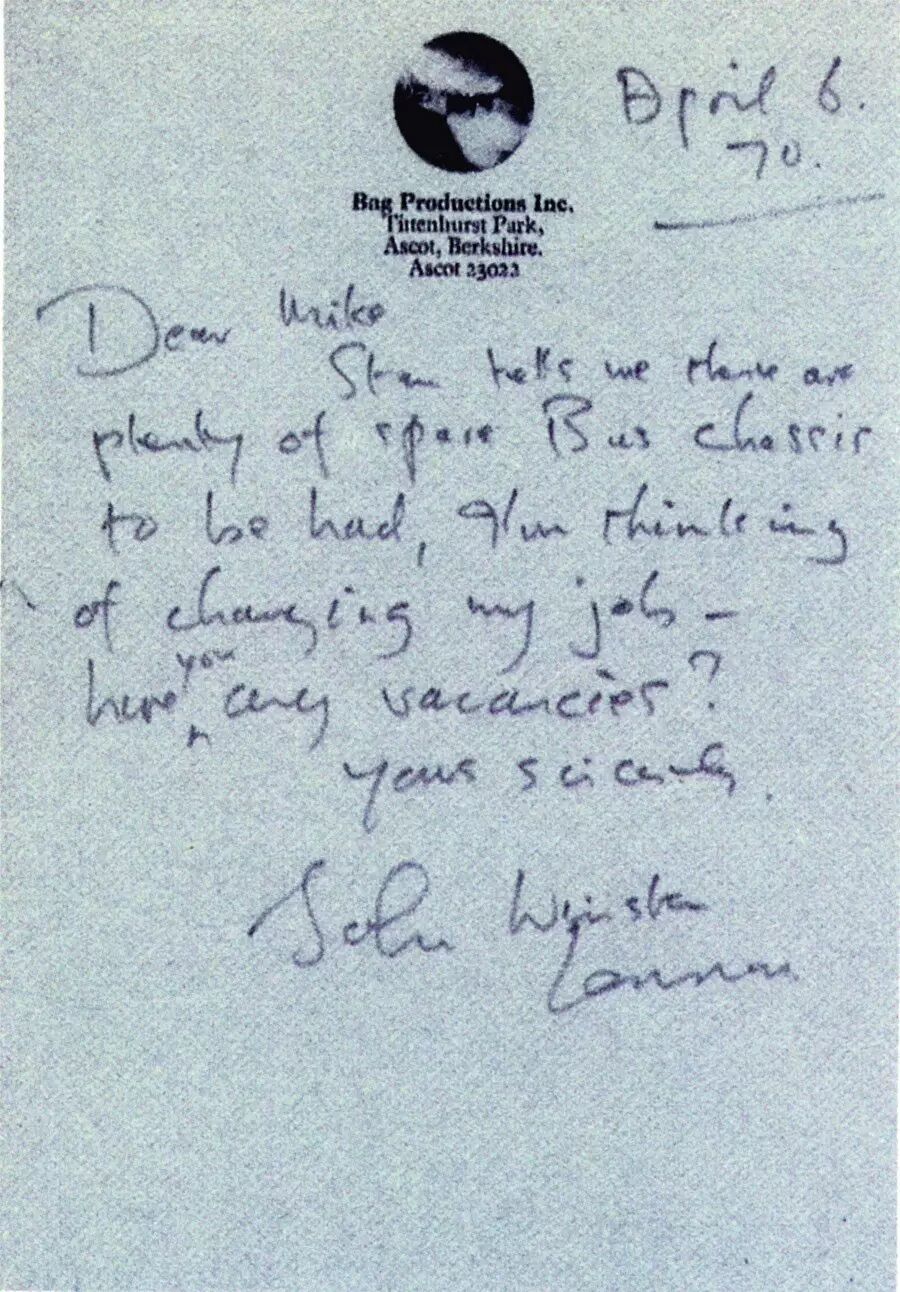 April 6.
70.
Bag Productions Inc.
Tittenhurst Park,
Ascot, Berkshire.
Ascot 23022
Dear Mike
Stan tells me there are
plenty of spare Bus chassis
to be had, I'm thinking
of changing my job –
have you any vacancies?
Yours sincerely.
John Winston
Lennon